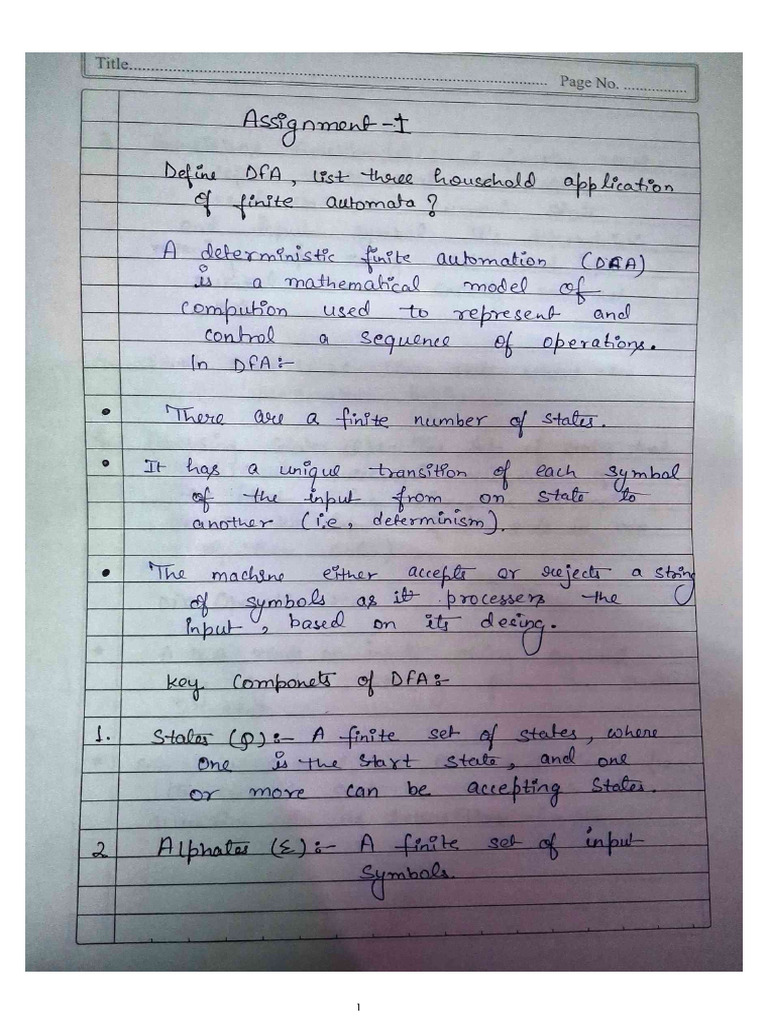 Title........ Page No. ........
Assignment-I
Define DFA, List three household application
of finite automata?
A deterministic finite automation (DFA)
is a mathematical model of
compution used to represent and
control a sequence of operations.
In DFA:-
• There are a finite number of states.
• It has a unique transition of each symbol
of the input from on state to
another (i.e, determinism).
• The machine either accepts or rejects a string
of symbols as it processers the
input, based on its desing.
Key Componets of DFA:-
1. States (Q):- A finite set of states, where
one is the start state, and one
or more can be accepting States.
2 Alphates (Σ):- A finite set of input
Symbols.
1